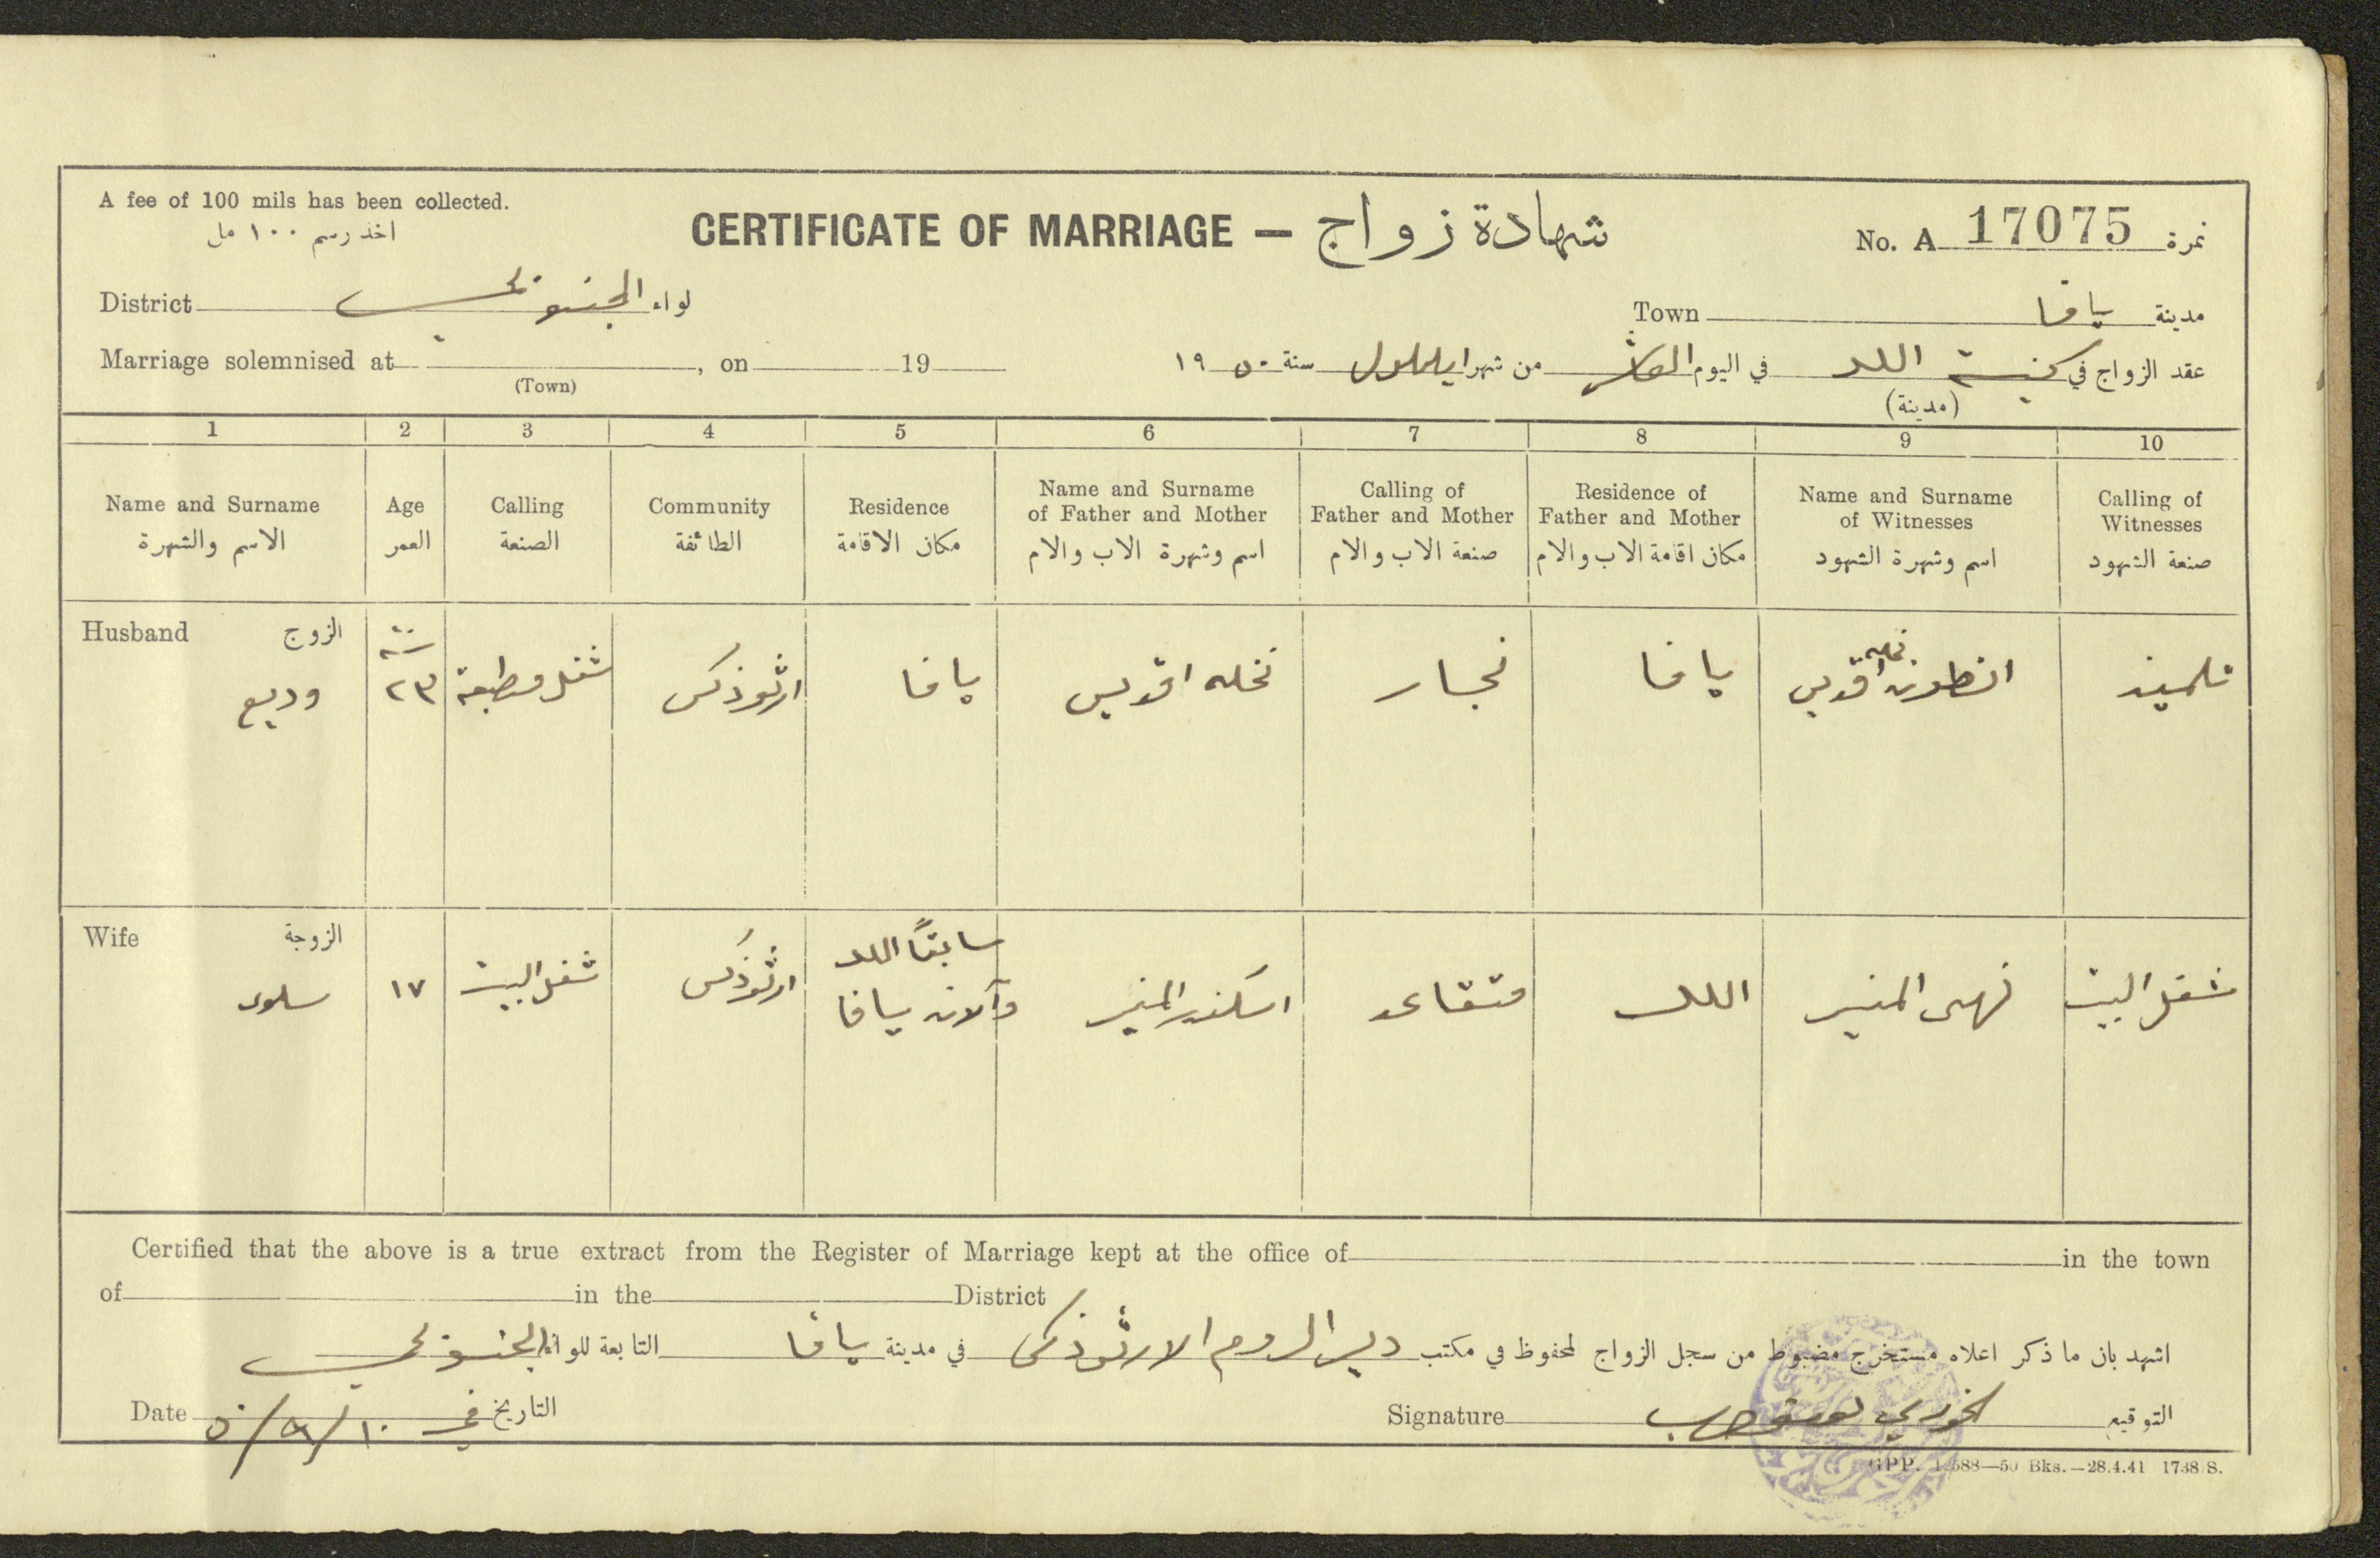 A fee of 100 mils has been collected.
اخذ رسم ١٠٠ مل
CERTIFICATE OF MARRIAGE — شهادة زواج
No. A 17075 نمرة
District الجنوبي لواء
Town يافا مدينة
Marriage solemnised at , on 19
(Town)
عقد الزواج في كنيسة اللد في اليوم العاشر من شهر ايلول سنة ١٩٥٠
(مدينة)
1 2 3 4 5 6 7 8 9 10
Name and Surname
الاسم والشهرة
Age
العمر
Calling
الصنعة
Community
الطائفة
Residence
مكان الاقامة
Name and Surname
of Father and Mother
اسم وشهرة الاب والام
Calling of
Father and Mother
صنعة الاب والام
Residence of
Father and Mother
مكان اقامة الاب والام
Name and Surname
of Witnesses
اسم وشهرة الشهود
Calling of
Witnesses
صنعة الشهود
Husband الزوج
وديع
سنة
٢٣
شغل مطبعة
ارثوذكس
يافا
نخله اقديس
نجار
يافا
انطون نخله اقديس
تلميذ
Wife الزوجة
سلوى
١٧
شغل البيت
ارثوذكس
سابقاً اللد
والآن يافا
اسكندر المنير
متقاعد
اللد
نهى المنير
شغل البيت
Certified that the above is a true extract from the Register of Marriage kept at the office of in the town
of in the District
اشهد بان ما ذكر اعلاه مستخرج مضبوط من سجل الزواج المحفوظ في مكتب دير الروم الارثوذكس في مدينة يافا التابعة للواء الجنوبي
Date ١٠/٩/٥٠ التاريخ في
Signature الخوري التوقيع
GPP. 12588—50 Bks.—28.4.41 1738/S.